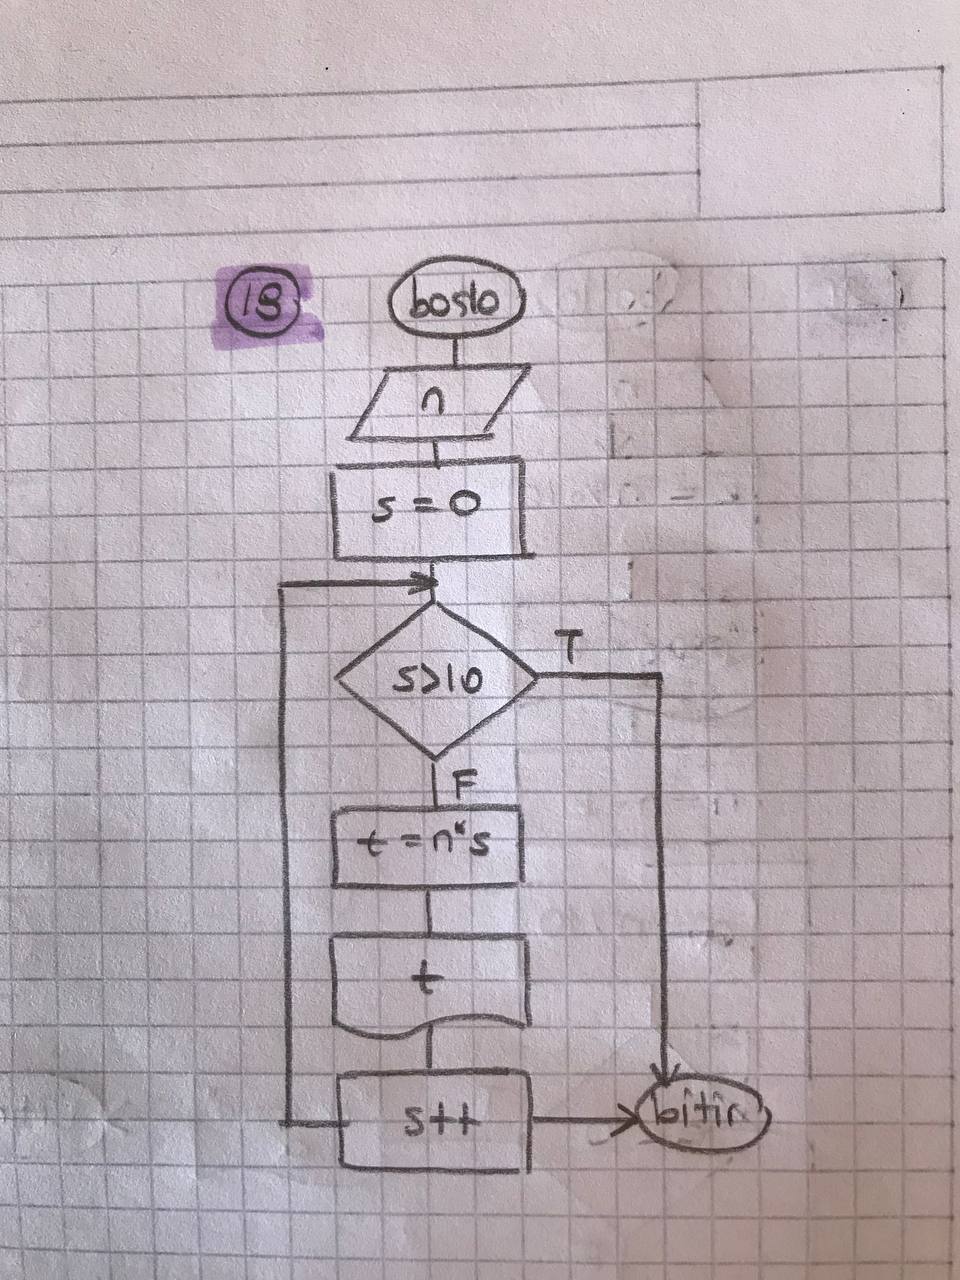 18
başla
n
s = 0
s>10
T
F
t = n*s
t
s++
bitir